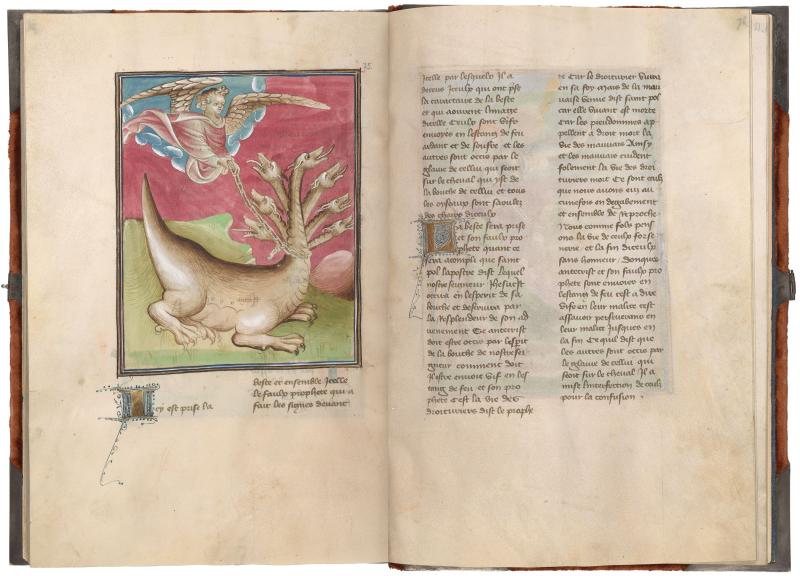 75
Icy est prise la
beste et ensemble Icelle
le faulx prophete qui a
fait les signes deuant
76
Icelle par lesquelx Il a
deceus Iceulx qui ont pse
la caractaire de la beste
et qui aouvent limaige
dicelle Ceulx sont vifs
enuoyes en lestang de feu
ardant et de souffre et les
autres sont occis par le
glaiue de cellui qui seoit
sur le cheual qui yst de
la bouche de cellui et tous
les oyseaux sont saoulez
des chairs diceulx
La beste sera prise
et son faulx pro
phete quant ce
sera acompli que saint
pol lapostre dist lequel
nostre seigneur Jhesucrist
occira en lesperit de sa
bouche et destruira par
la Resplendeur de son ad
uenement Se antecrist
doit estre occis par lespit
de la bouche de nostre sei
gneur comment doit
Il estre enuoie vif en les
tang de feu et son pro
phete Cest la vie des
droituriers dist le prophe
te Car le droiturier viura
en sa foy Mais de la mau
uaise vefue dist saint pol
car elle viuant est morte
Car les preudommes ap
pellent a droit mort la
vie des mauuais Ainsy
et les mauuais cuident
folement la vie des droi
turiers mort Ce sont ceulx
que nous auons eu au
cunefois en degabement
et ensemble de Reproche
Nous comme fols pens
ons la vie de ceulx forse
nerie et la fin diceulx
sans honneur Donques
antecrist et son faulx pro
phete sont enuoies en
lestang de feu cest a dire
vifs en leur malice cest
assauoir perseuerans en
leur malice Jusques en
la fin Ce quil dist que
les autres sont occis par
le glaiue de cellui qui
seoit sur le cheual Il a
mise linterfection de ceulx
pour la confusion